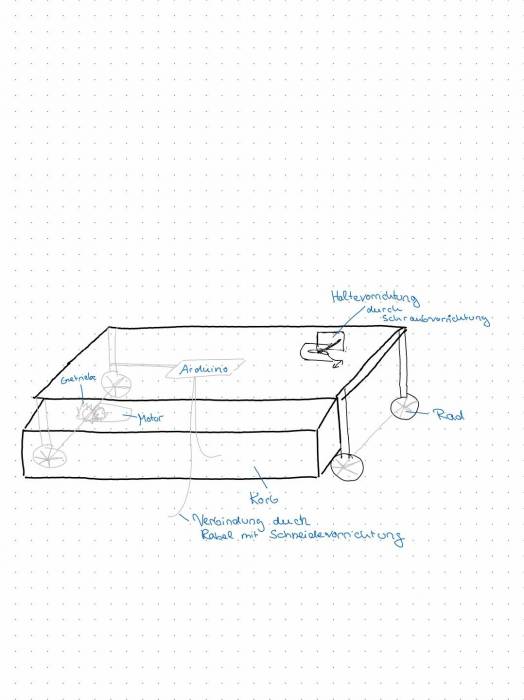 Haltevorrichtung
durch
Schraubvorrichtung
Arduino
Getriebe
Motor
Rad
Korb
Verbindung durch
Kabel mit Schneidevorrichtung